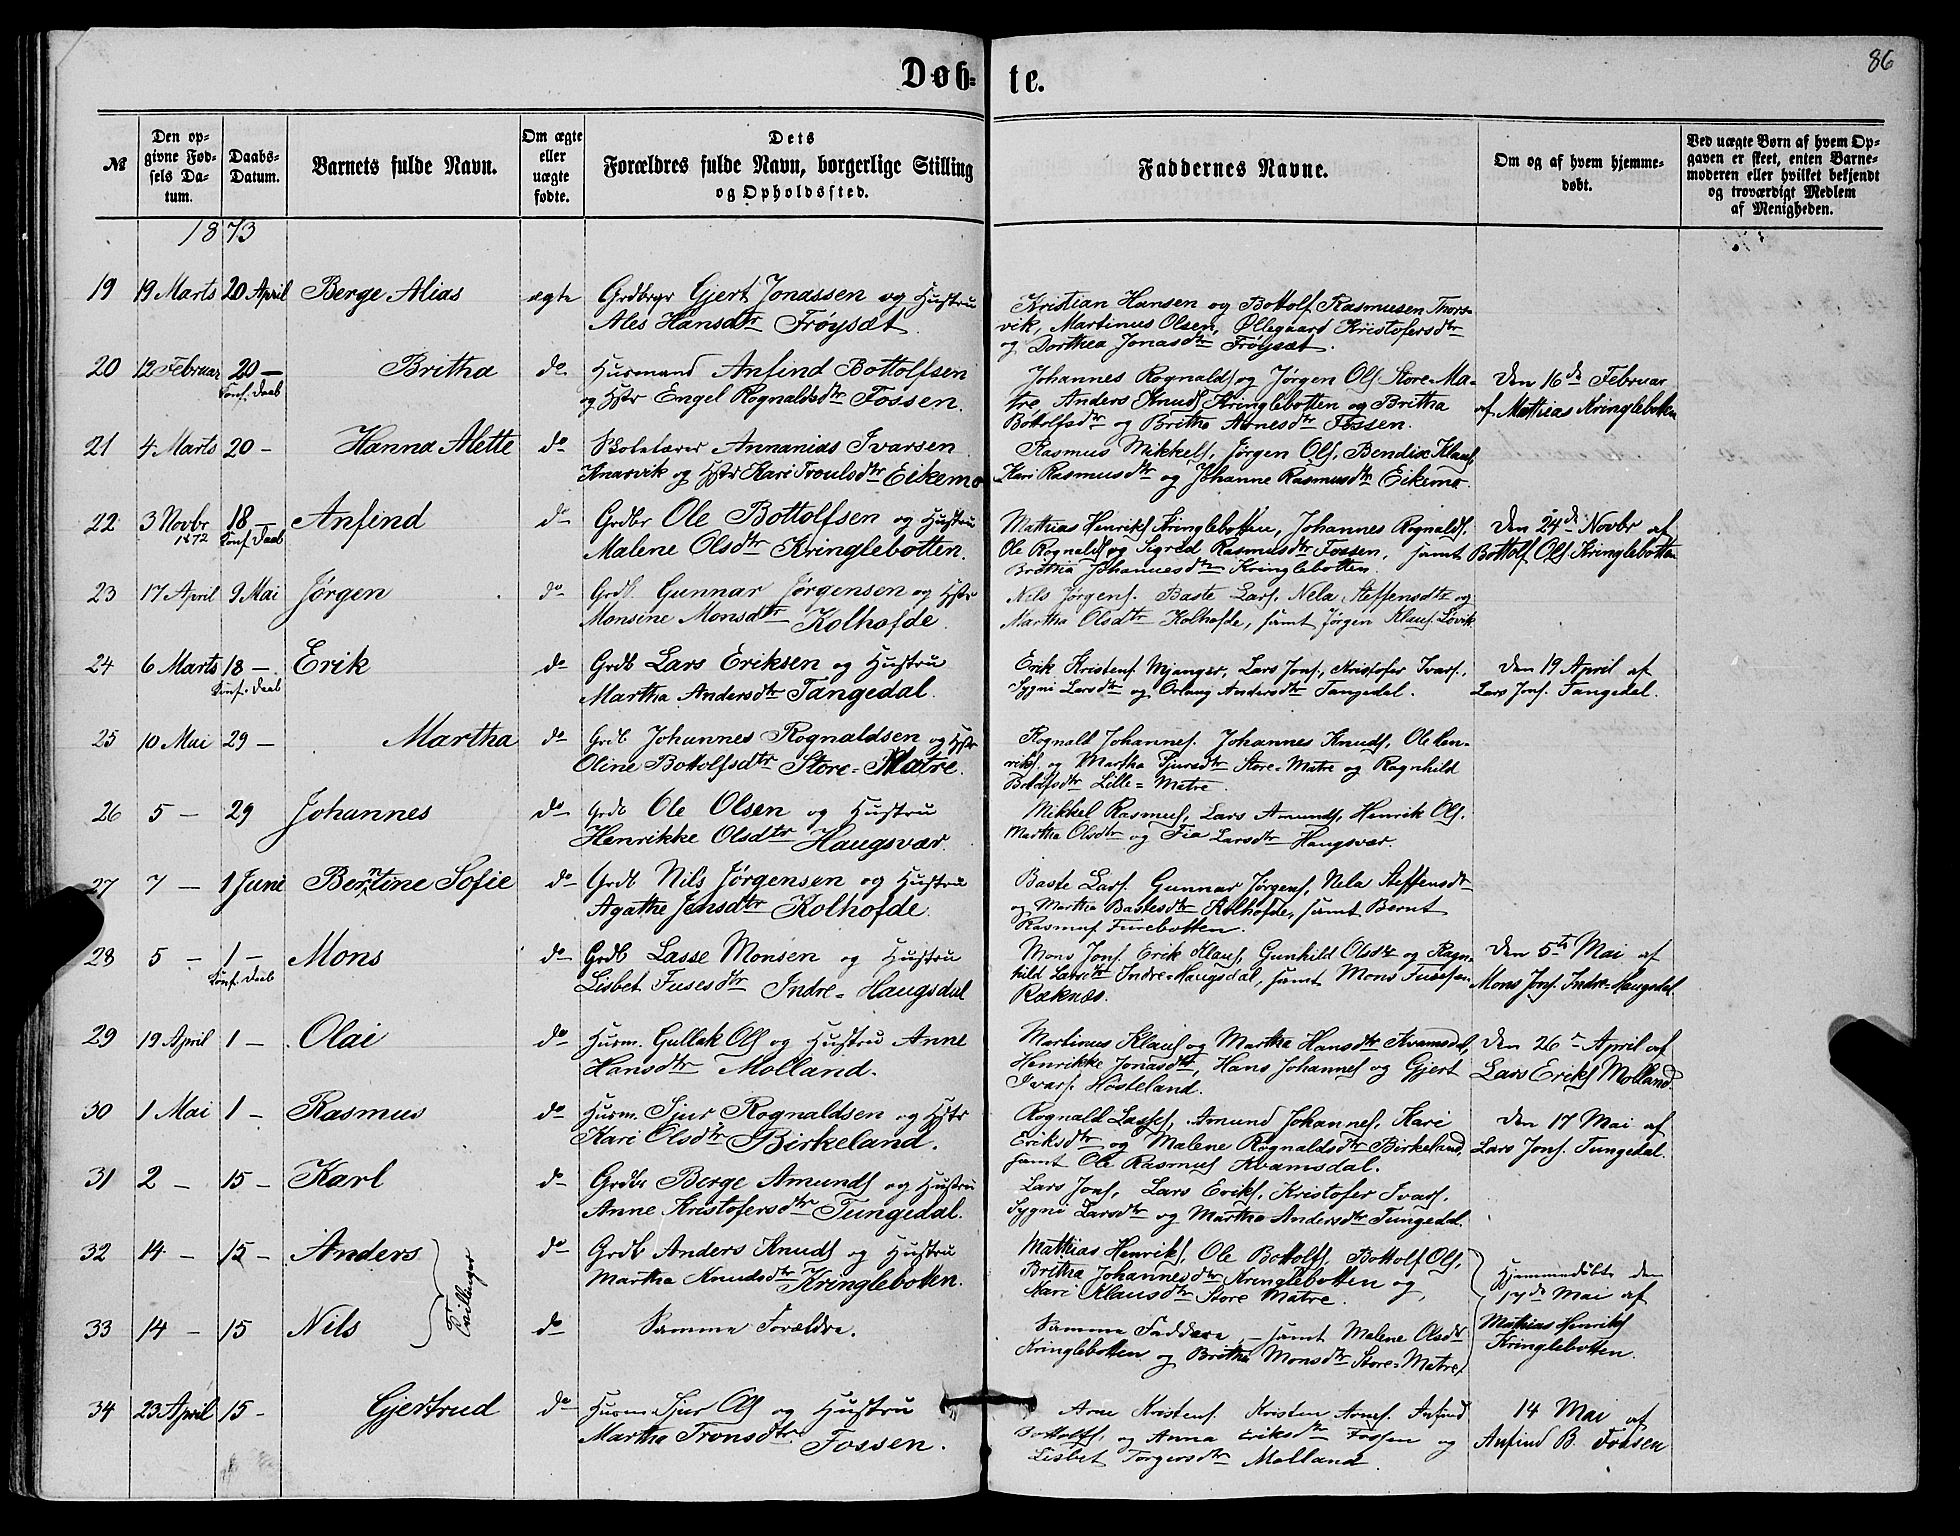 86
Døb-
te.
№
Den op-
givne Fød-
sels Da-
tum.
Daabs-
Datum.
Barnets fulde Navn.
Om ægte
eller
uægte
fødte.
Dets
Forældres fulde Navn, borgerlige Stilling
og Opholdssted.
Faddernes Navne.
Om og af hvem hjemme-
døbt.
Ved uægte Børn af hvem Op-
gaven er skeet, enten Barne-
moderen eller hvilket bekjendt
og troværdigt Medlem
af Menigheden.
1873
19 19 Marts 20 April Berge Alias ægte Grdbrgr Gjert Jonassen og Hustru
Ales Hansdtr Frøysæt.
Kristian Hansen og Bottolf Rasmusen Thors-
vik, Martinus Olsen, Øllegaard Kristofersdtr
og Dorthea Jonasdtr Frøysæt.
20 12 Februar 20 — Britha do Husmand Anfind Bottolfsen
Konf. Daab og Hstr Engel Rognaldsdtr Fossen.
Johannes Rognalds og Jørgen Ols Store-Ma-
tre, Anders Knuds Kringlebotten og Britha
Bottolfsdtr og Britha Arnesdtr Fossen.
Den 16de Februar
af Mathias Kringlebotten
21 4 Marts 20 — Hanna Alette do Skolelærer Annanias Ivarsen
Knarvik og Hstr Kari Troulsdtr Eikemo
Rasmus Mikkels, Jørgen Ols, Bendix Klaus,
Kari Rasmusdtr og Johanne Rasmusdtr Eikemo.
22 3 Novbr 18 — Anfind do Grdbr Ole Bottolfsen og Hustru
1872 Konf. Daab Malene Olsdtr Kringlebotten.
Mathias Henriks Kringlebotten, Johannes Rognalds,
Ole Rognalds og Sigrid Rasmusdtr Fossen, samt
Britha Johannesdtr Kringlebotten.
Den 24de Novbr af
Bottolf Ols Kringlebotten
23 17 April 9 Mai Jørgen do Grdb. Gunnar Jørgensen og Hstr
Monsine Monsdtr Kolhofde.
Nils Jørgens. Baste Lars. Nela Steffensdtr og
Martha Olsdtr Kolhofde, samt Jørgen Klaus. Løvik
24 6 Marts 18 — Erik do Grdb Lars Eriksen og Hustru
Konf. Daab Martha Andersdtr Tangedal.
Erik Kristens Mjanger, Lars Jons, Kristofer Ivars,
Sygni Larsdtr og Orlaug Andersdtr Tangedal.
Den 19 April af
Lars Jons. Tangedal.
25 10 Mai 29 — Martha do Grdb Johannes Rognaldsen og Hstr
Oline Bottolfsdtr Store-Matre.
Rognald Johannes. Johannes Knuds, Ole Hen-
riks. og Martha Sjursdtr Store-Matre og Ragnhild
Lille=Matre.
26 5 — 29 Johannes do Grdb Ole Olsen og Hustru
Henrikke Olsdtr Haugsvær.
Mikkel Rasmus, Lars Amunds, Henrik Ols.
Martha Olsdtr og Fia Larsdtr Haugsvær.
27 7 — 1 Juni Berntine Sofie do Grdb Nils Jørgensen og Hustru
Agathe Jensdtr Kolhofde.
Baste Lars. Gunnar Jørgens, Nela Steffensdtr
og Martha Bastesdtr Kolhofde, samt Bernt
Rasmus Furebotten.
28 5 — 1 — Mons do Grdb Lasse Monsen og Hustru
Konf. Daab Lisbet Fusesdtr Indre=Haugsdal
Mons Jons. Erik Klaus, Gunhild Olsdtr og Ragn-
hild Larsdtr Indre-Haugsdal, samt Mons Fusesen
Ræknæs.
Den 5te Mai af
Mons Jons. Indre-Haugsdal.
29 19 April 1 — Olai do Husm. Gullak Ols og Hustru Anne
Hansdtr Molland.
Martinus Klaus og Martha Hansdtr Kvamsdal,
Henrikke Jonasdtr, Hans Johannes og Gjert
Ivars. Hosteland.
Den 26de April af
Lars Eriks Molland.
30 1 Mai 1 — Rasmus do Husm. Sjur Rognaldsen og Hstr
Kari Olsdtr Birkeland.
Rognald Lasses, Amund Johannes, Kari
Eriksdtr og Malene Rognaldsdtr Birkeland,
samt Ole Rasmus Kvamsdal.
Den 17 Mai af
Lars Jons. Tangedal.
31 2 — 15 — Karl do Grdbr Berge Amunds og Hustru
Anne Kristofersdtr Tangedal.
Lars Jons, Lars Eriks, Kristofer Ivars,
Sygni Larsdtr og Martha Andersdtr Tangedal.
32 14 — 15 — Anders do Grdb Anders Knuds og Hustru
Martha Knudsdtr Kringlebotten.
Tvillinger
Mathias Henriks, Ole Bottolfs, Bottolf Ols,
Britha Johannesdtr Kringlebotten og
Kari Klausdtr Store Matre.
Hjemmedøbte den
17de Mai af
Mathias Henriks
Kringlebotten.
33 14 — 15 Nils do Samme Forældre.
Samme Faddere, — samt Malene Olsdtr
Kringlebotten og Britha Monsdtr Store-Matre
34 23 April 15 — Gjertrud do Husm. Sjur Ols og Hustru
Martha Tronsdtr Fossen.
Arne Kristens. Kristen Arnes. Anfind
Bottolfs, og Anna Eriksdtr Fossen og
Lisbet Torgersdtr Molland.
14 Mai af
Anfind B. Fossen